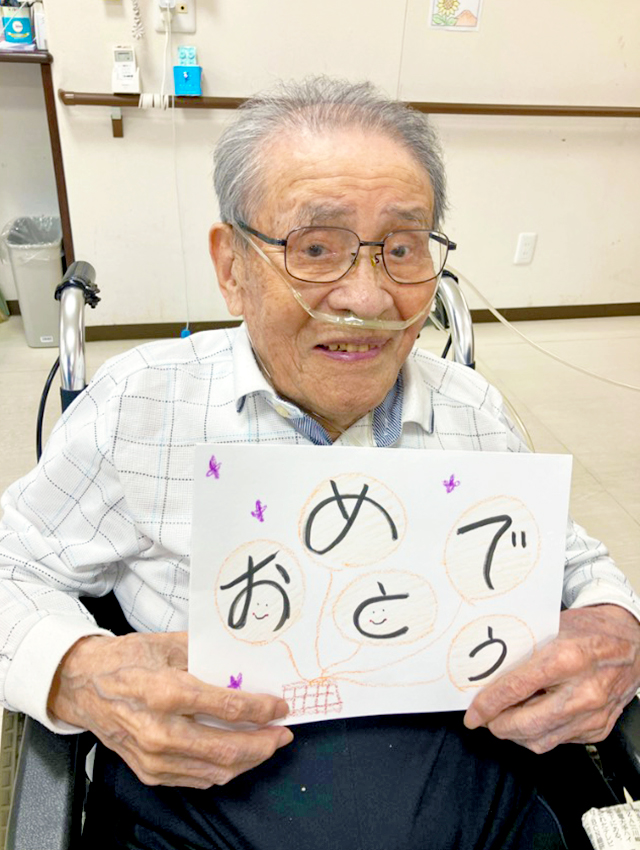 おめでとう